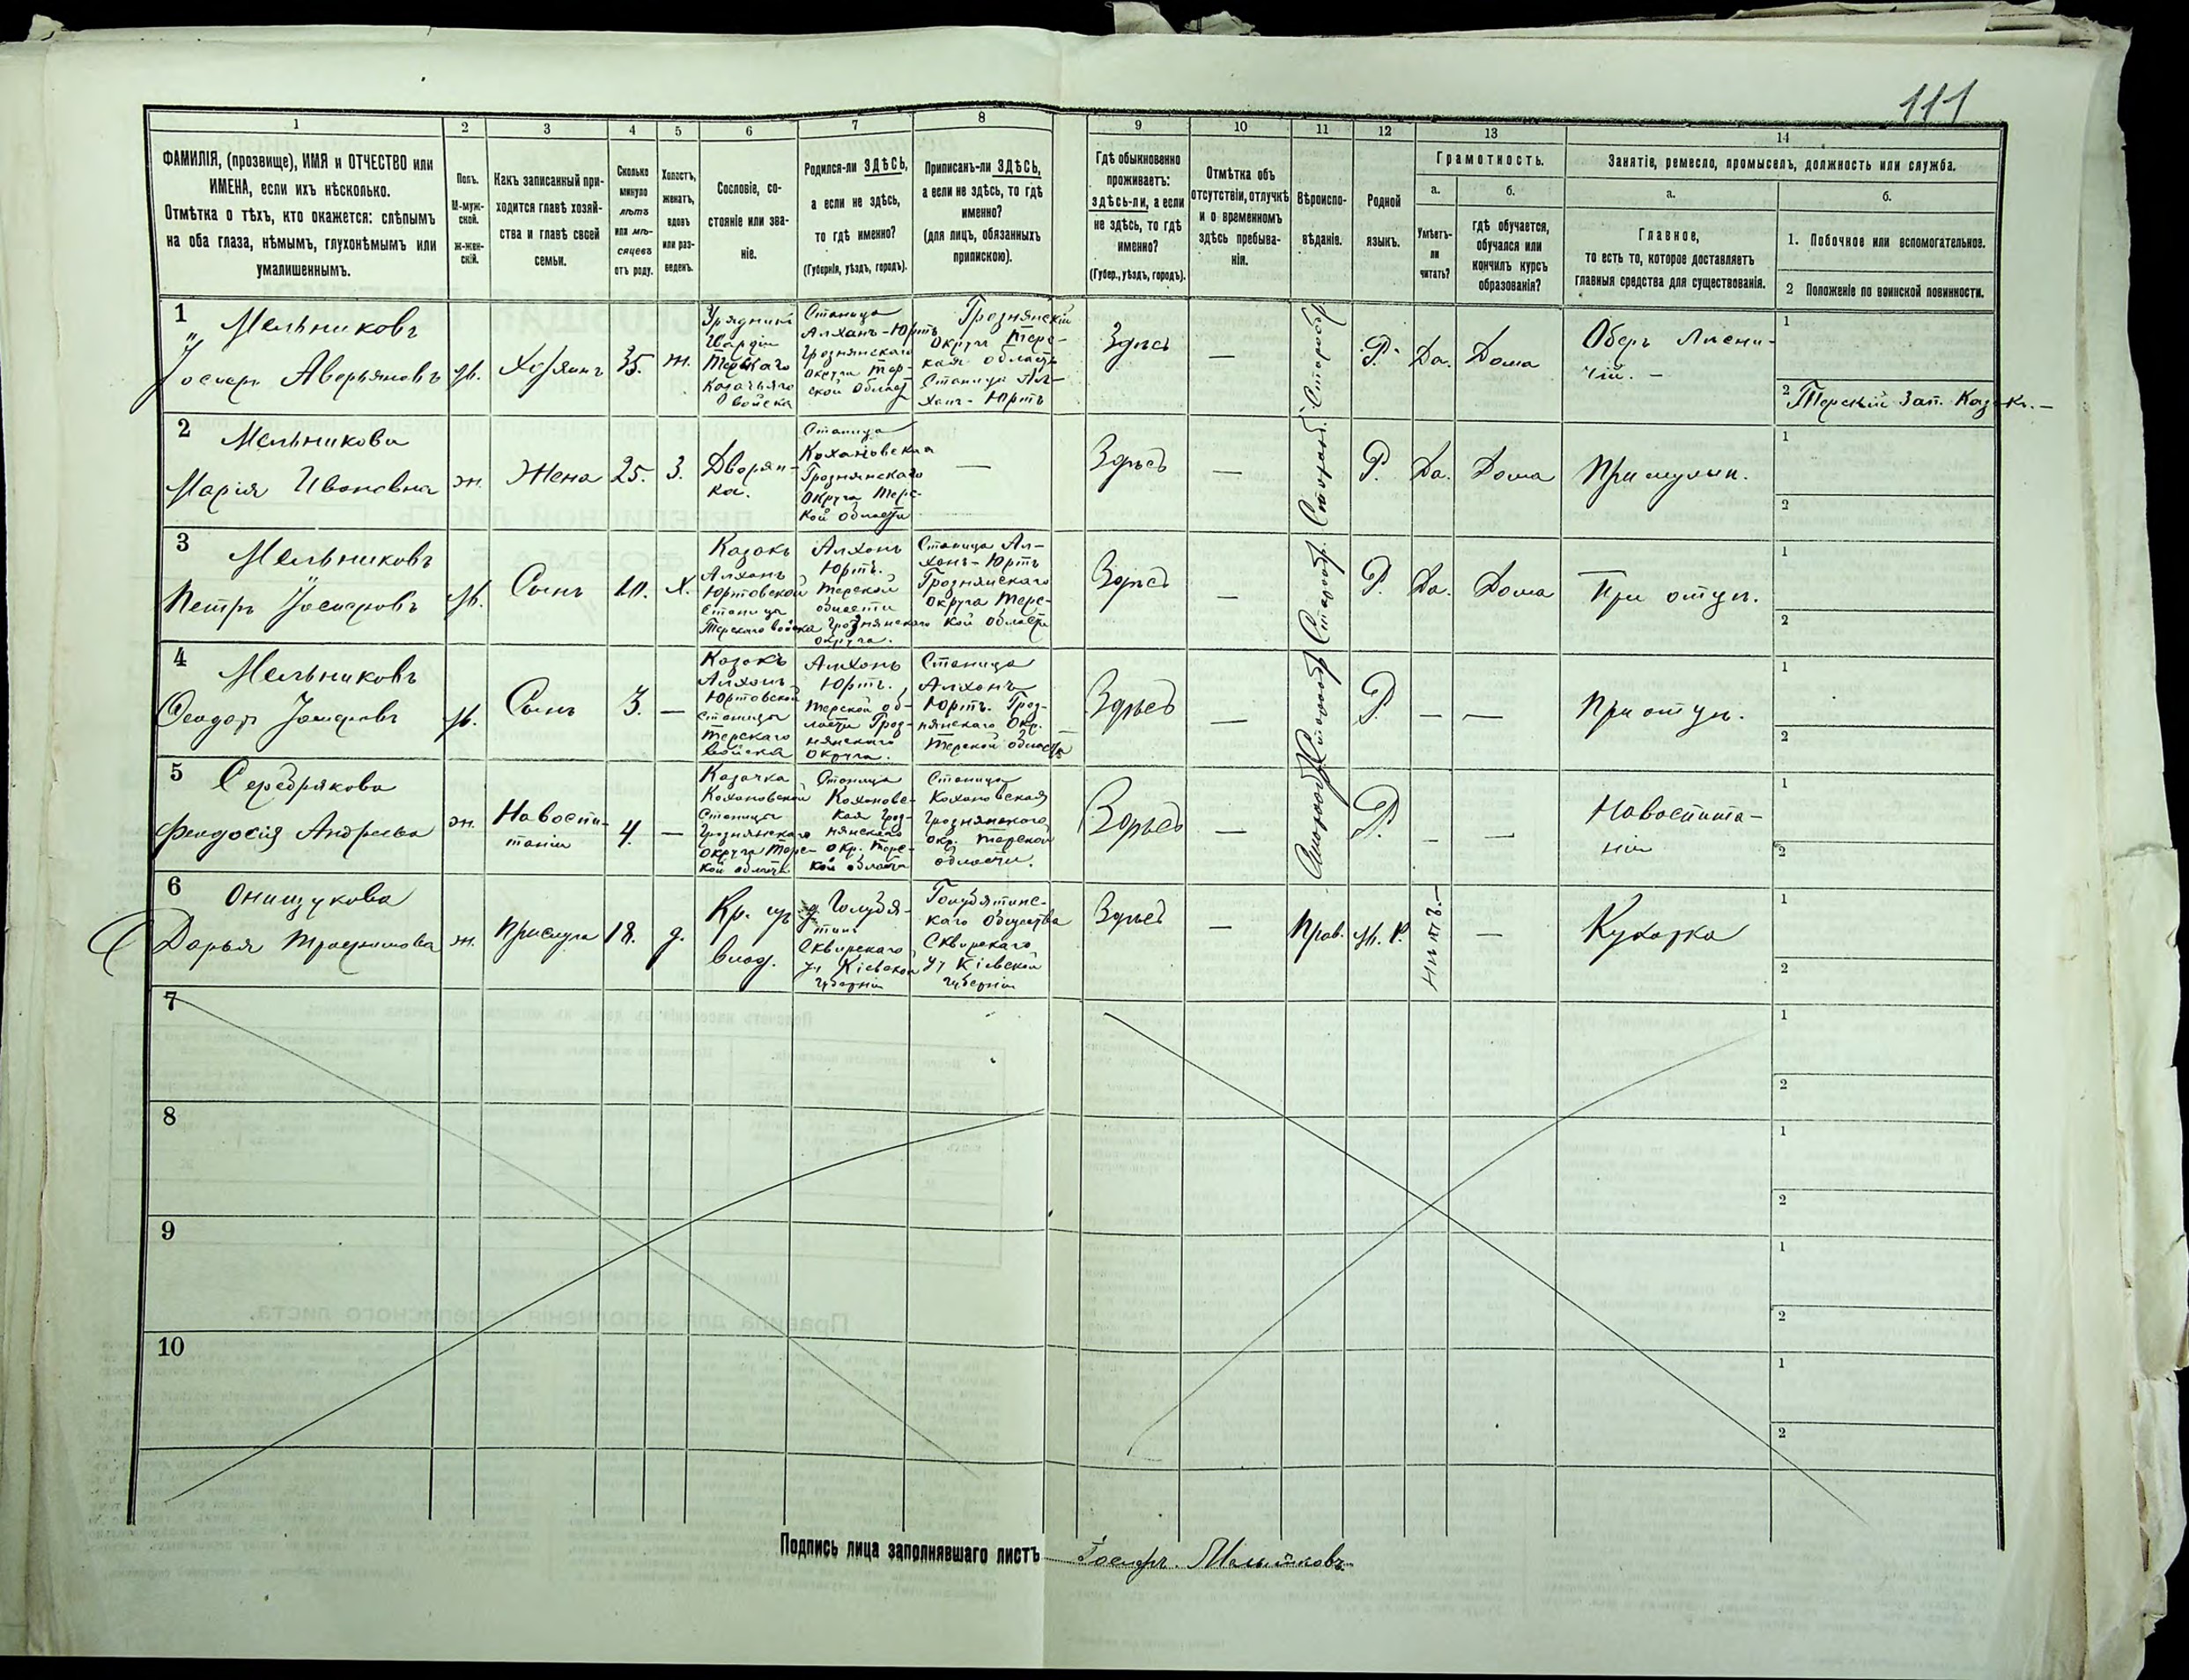 111
1 2 3 4 5 6 7 8 9 10 11 12 13 14
ФАМИЛІЯ, (прозвище), ИМЯ и ОТЧЕСТВО или
ИМЕНА, если ихъ нѣсколько.
Отмѣтка о тѣхъ, кто окажется: слѣпымъ
на оба глаза, нѣмымъ, глухонѣмымъ или
умалишеннымъ.
Полъ.
М-муж-
ской.
ж-жен-
скій.
Какъ записанный при-
ходится главѣ хозяй-
ства и главѣ своей
семьи.
Сколько
минуло
лѣтъ
или мѣ-
сяцевъ
отъ роду.
Холостъ,
женатъ,
вдовъ
или раз-
веденъ.
Сословіе, со-
стояніе или зва-
ніе.
Родился-ли ЗДѢСЬ,
а если не здѣсь,
то гдѣ именно?
(Губернія, уѣздъ, городъ).
Приписанъ-ли ЗДѢСЬ,
а если не здѣсь, то гдѣ
именно?
(для лицъ, обязанныхъ
припискою).
Гдѣ обыкновенно
проживаетъ:
здѣсь-ли, а если
не здѣсь, то гдѣ
именно?
(Губер., уѣздъ, городъ).
Отмѣтка объ
отсутствіи, отлучкѣ
и о временномъ
здѣсь пребыва-
ніи.
Вѣроиспо-
вѣданіе.
Родной
языкъ.
Грамотность.
а.
Умѣетъ-
ли
читать?
б.
гдѣ обучается,
обучался или
кончилъ курсъ
образованія?
Занятіе, ремесло, промыселъ, должность или служба.
а.
Главное,
то есть то, которое доставляетъ
главныя средства для существованія.
б.
1. Побочное или вспомогательное.
2 Положеніе по воинской повинности.
1 Мельниковъ
Іосифъ Аверьяновъ
М.
Хозяинъ
35.
ж.
Урядникъ
Гвардіи
Терскаго
Казачьяго
войска
Станица
Алханъ-Юртъ
Грознянскаго
округа Тер-
ской област
Грознянскій
округа Терс-
кая область
Станица Ал-
ханъ-Юртъ
Здѣсь
—
Старообр.
Р.
Да.
Дома
Оберъ Лѣсни-
чій. —
1
2 Терскій Зап. Казакъ. —
2 Мельникова
Марія Ивановна
ж.
Жена
25.
З.
Дворян-
ка.
Станица
Кохановская
Грознянскаго
Округа Терс-
кой области
—
Здѣсь
—
Старообр.
Р.
Да.
Дома
При мужѣ.
1
2
3 Мельниковъ
Петръ Іосифовъ
М.
Сынъ
10.
Х.
Казакъ
Алханъ
Юртовской
Станицы
Терскаго войска
Алханъ
Юртъ.
Терской
области
Грознянскаго
округа.
Станица Ал-
ханъ-Юртъ
Грознянскаго
округа Терс-
кой области
Здѣсь
—
Старообр.
Р.
Да.
Дома
При отцѣ.
1
2
4 Мельниковъ
Ѳеодоръ Іосифовъ
М.
Сынъ
3.
—
Казакъ
Алханъ
Юртовской
Станицы
Терскаго
войска
Алханъ
Юртъ.
Терской об-
ласти Гроз-
нянскаго
округа.
Станица
Алханъ
Юртъ. Гроз-
нянскаго Окр.
Терской области
Здѣсь
—
Старообр
Р.
—
—
При отцѣ.
1
2
5 Серебрякова
Феодосія Андреева
ж.
На воспи-
таніи
4.
—
Казачка
Кохановской
Станицы
Грознянскаго
округа Терс-
кой области
Станица
Кохановс-
кая Гроз-
нянскаго
окр. Терс-
кой области
Станица
Кохановская
Грознянскаго
окр. Терской
области.
Здѣсь
—
Старообр.
Р.
—
—
На воспита-
ніи
1
2
6 Онищукова
Дарья Трофимова
ж.
Прислуга
18.
д.
Кр. изъ
влад.
Голубя-
тинъ
Сквирскаго
у. Кіевской
губерніи
Голубятинс-
каго общества
Сквирскаго
у. Кіевской
губерніи
Здѣсь
—
Прав.
М. Р.
Нѣтъ. —
—
Кухарка
1
2
7
1
2
8
1
2
9
1
2
10
1
2
Подпись лица заполнявшаго листъ Іосифъ. Мельниковъ